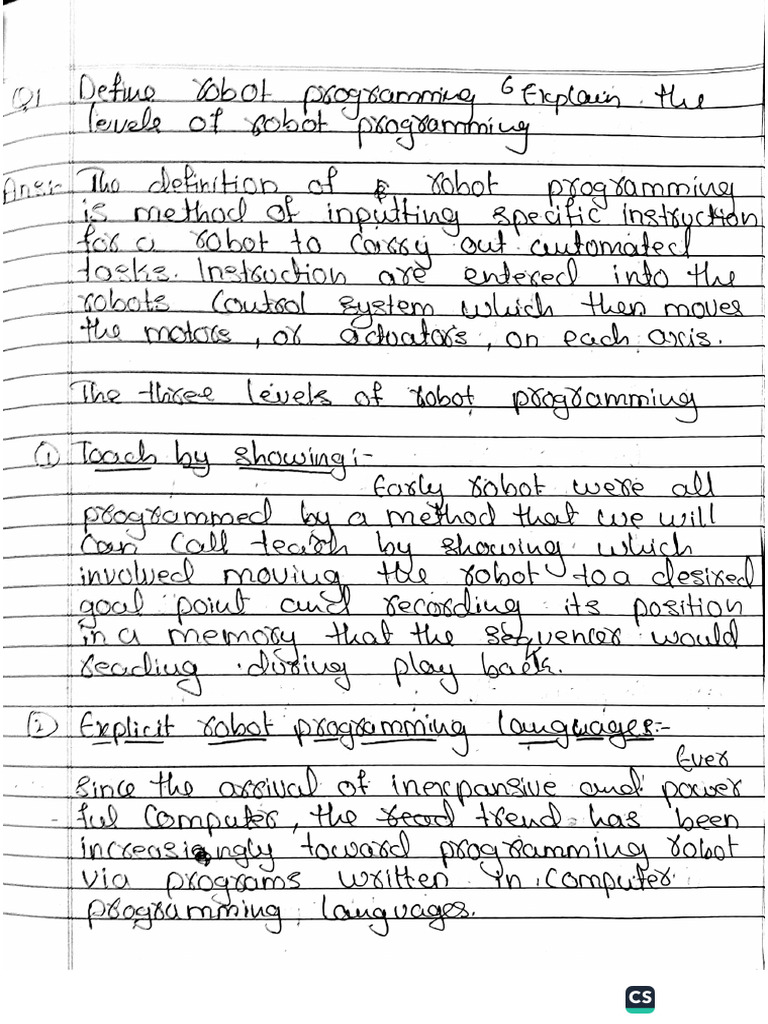 Q1 Define robot programming & Explain the
levels of robot programming
Ans:- The definition of robot programming
is method of inputting specific instruction
for a robot to carry out automated
tasks. Instruction are entered into the
robots control system which then moves
the motors, or actuators, on each axis.
The three levels of robot programming
① Teach by showing:-
Early robot were all
programmed by a method that we will
can call teach by showing which
involved moving the robot to a desired
goal point and recording its position
in a memory that the sequencer would
reading during play back.
② Explicit robot programming languages:-
Ever
since the arrival of inexpansive and power
ful computer, the trend has been
increasingly toward programming robot
via programs written in computer
programming languages.
CS